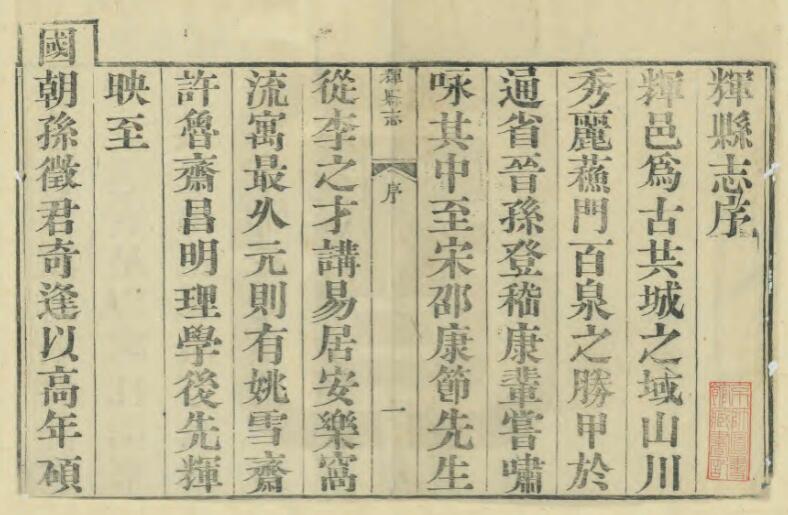 輝縣志序
輝邑爲古共城之域山川
秀麗蘓門百泉之勝甲於
通省晉孫登嵇康輩嘗嘯
咏其中至宋邵康節先生
輝縣志 序 一
從李之才講易居安樂窩
流寓最久元則有姚雪齋
許魯齋昌明理學後先輝
映至
國朝孫徵君奇逢以高年碩